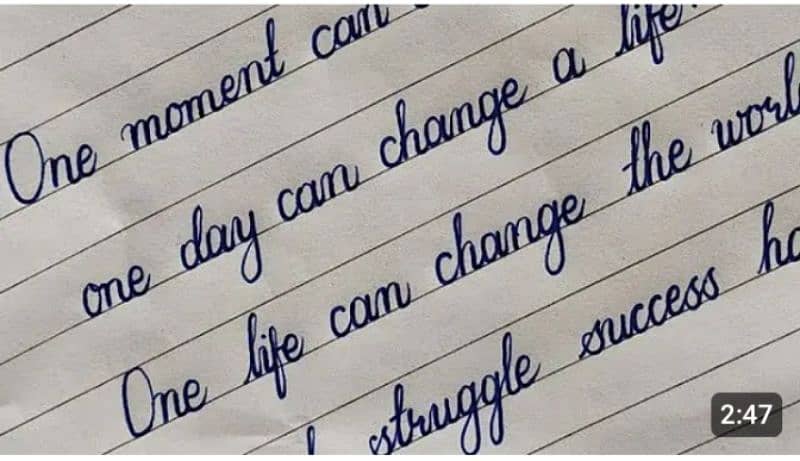 One moment can
one day can change a life.
One life can change the world
struggle success
2:47